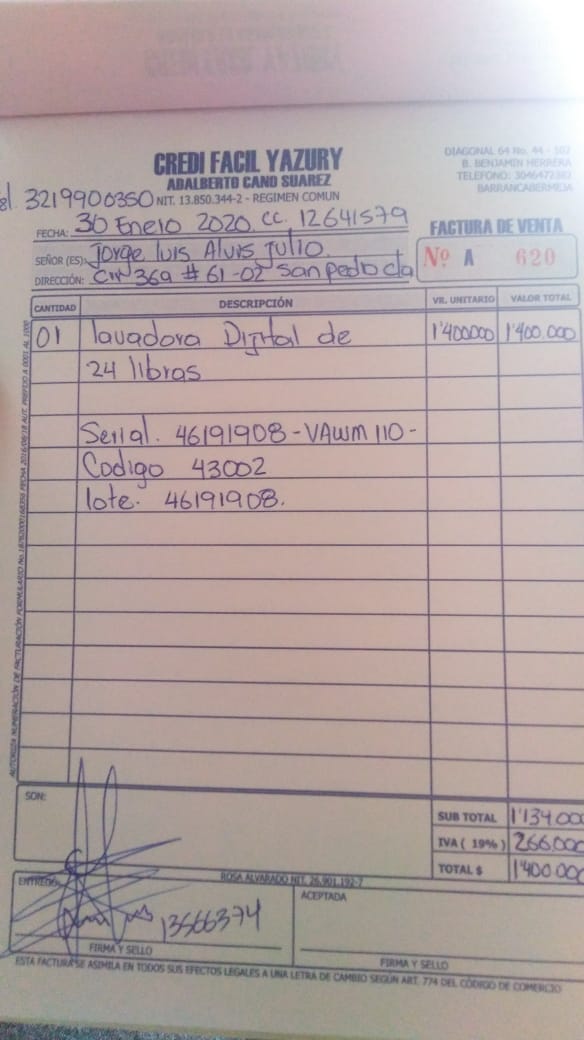 CREDI FACIL YAZURY
ADALBERTO CANO SUAREZ
NIT. 13.850.344-2 - REGIMEN COMUN
DIAGONAL 64 No. 44 - 102
B. BENJAMIN HERRERA
TELEFONO: 3046472383
BARRANCABERMEJA
el. 3219900350
FECHA: 30 Enero 2020. cc. 12641579
SEÑOR (ES): Jorge luis Alvis Julio.
DIRECCIÓN: # 61-02 San pedro cta
FACTURA DE VENTA
Nº A 620
CANTIDAD DESCRIPCIÓN VR. UNITARIO VALOR TOTAL
01 lavadora Digital de 1'400000 1'400.000
24 libras
Serial. 46191908-VAWM 110-
Codigo 43002
lote. 46191908.
SON:
SUB TOTAL 1'134.000
IVA ( 19% ) 266.000
TOTAL $ 1'400.000
ROSA ALVARADO NIT. 26.901.192-7
ENTREGO:
ACEPTADA
13566374
FIRMA Y SELLO
FIRMA Y SELLO
ESTA FACTURA SE ASIMILA EN TODOS SUS EFECTOS LEGALES A UNA LETRA DE CAMBIO SEGÚN ART. 774 DEL CÓDIGO DE COMERCIO